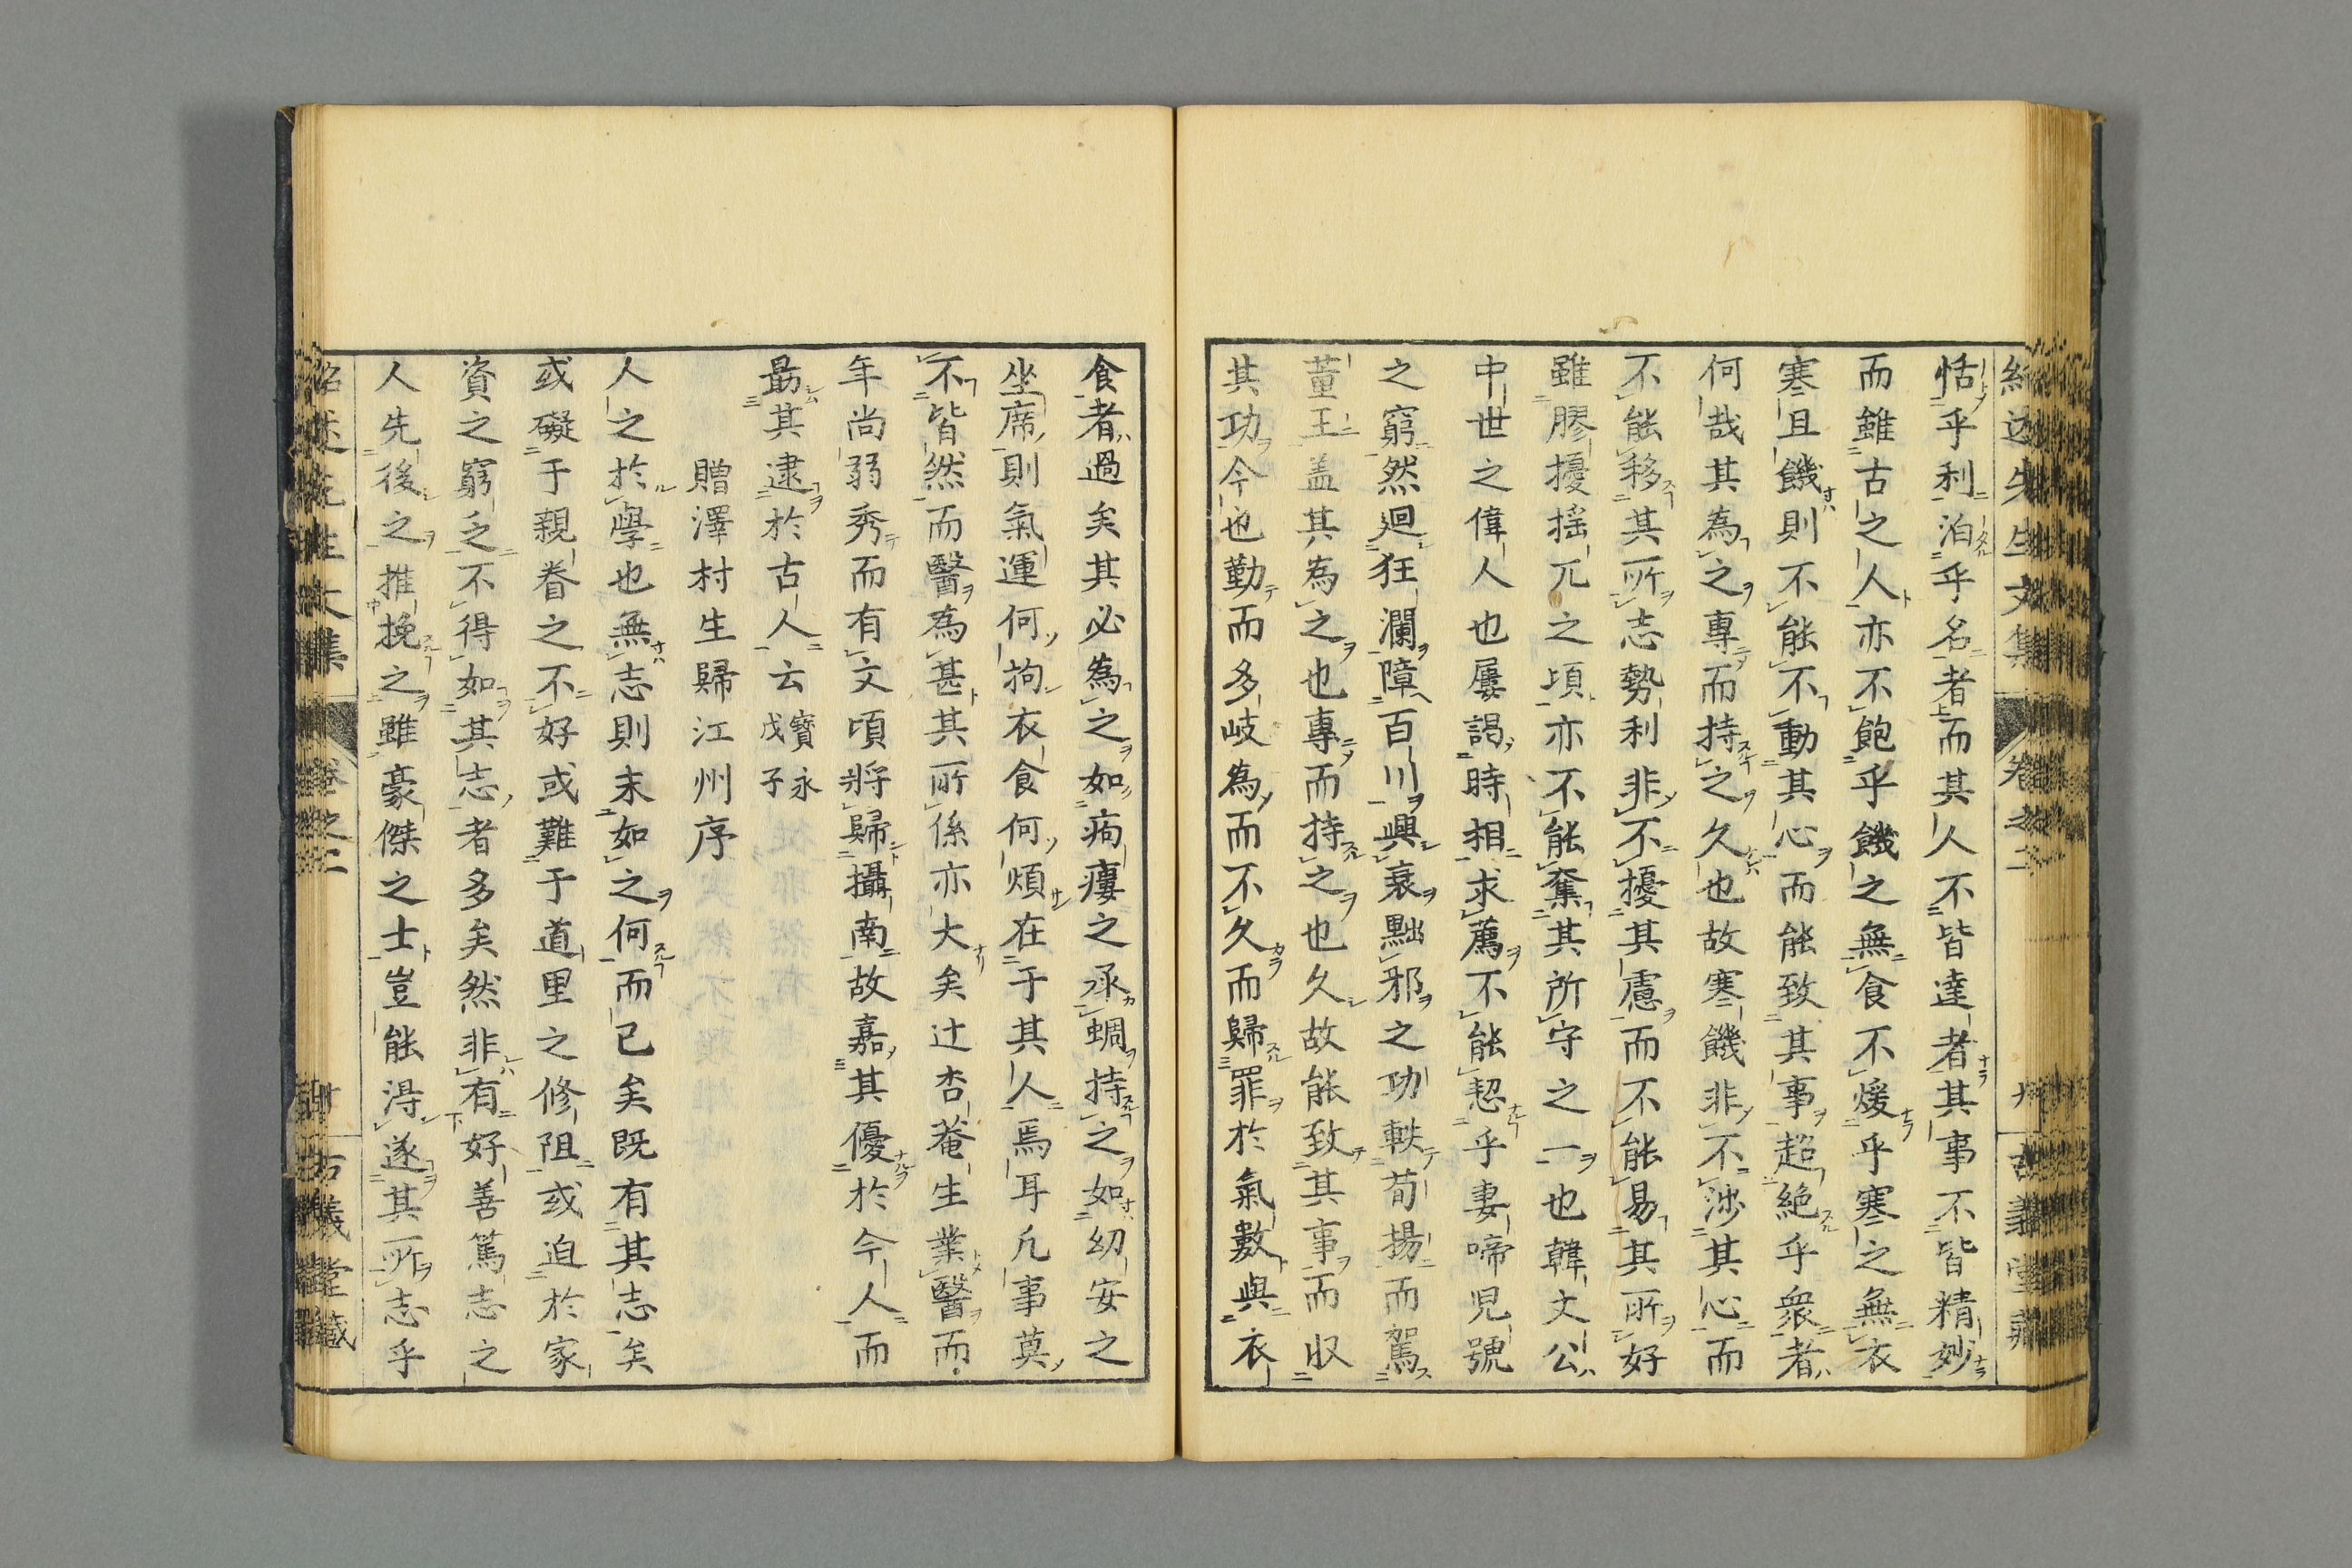 恬乎利泊乎名者而其人不皆達者其事不皆精妙
而雖古之人亦不飽乎饑之無食不煖乎寒之無衣
寒且饑則不能不動其心而能致其事超絶乎衆者
何哉其為之專而持之久也故寒饑非不渉其心而
不能移其所志勢利非不擾其慮而不能易其所好
雖膠擾搖兀之頃亦不能奪其所守之一也韓文公
中世之偉人也屢謁時相求薦不能恝乎妻啼兒號
之窮然迴狂瀾障百川興衰黜邪之功軼荀揚而駕
董王盖其為之也專而持之也久故能致其事而収
其功今也勤而多岐為而不久而歸罪於氣數與衣
食者過矣其必為之如痀瘻之承蜩持之如幼安之
坐席則氣運何拘衣食何煩在于其人焉耳凡事莫
不皆然而醫為甚其所係亦大矣辻杏菴生業醫而
年尚弱秀而有文頃將歸攝南故嘉其優於今人而
勗其逮於古人云寶永戊子
贈澤村生歸江州序
人之於學也無志則末如之何而已矣既有其志矣
或礙于親眷之不好或難于道里之修阻或迫於家
資之窮乏不得如其志者多矣然非有好善篤志之
人先後之推挽之雖豪傑之士豈能得遂其所志乎
紹述先生文集 卷之二 古義堂藏